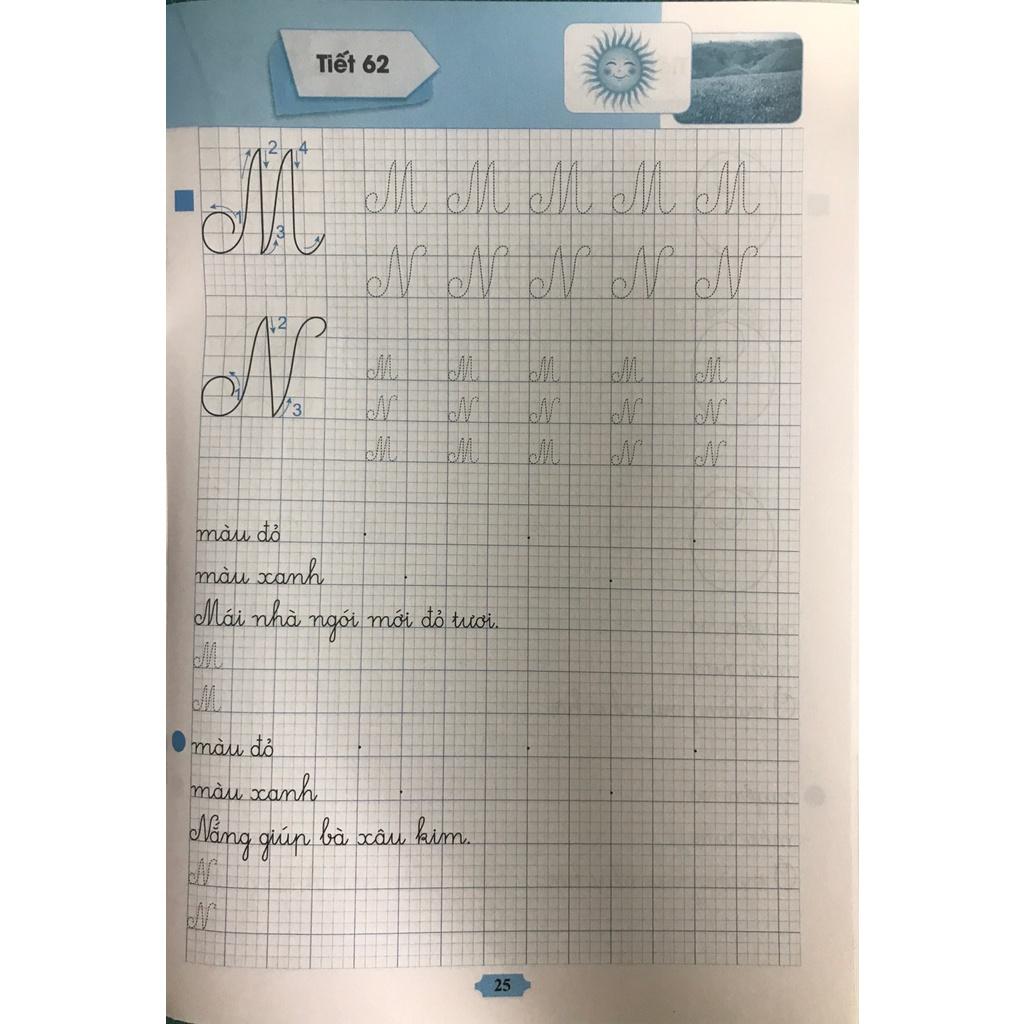 Tiết 62
1 2 3 4
M M M M M M
N N N N N
1 2 3
N
M M M M M
N N N N N
M M M N N
màu đỏ
màu xanh
Mái nhà ngói mới đỏ tươi.
M
M
màu đỏ
màu xanh
Nắng giúp bà xâu kim.
N
N
25